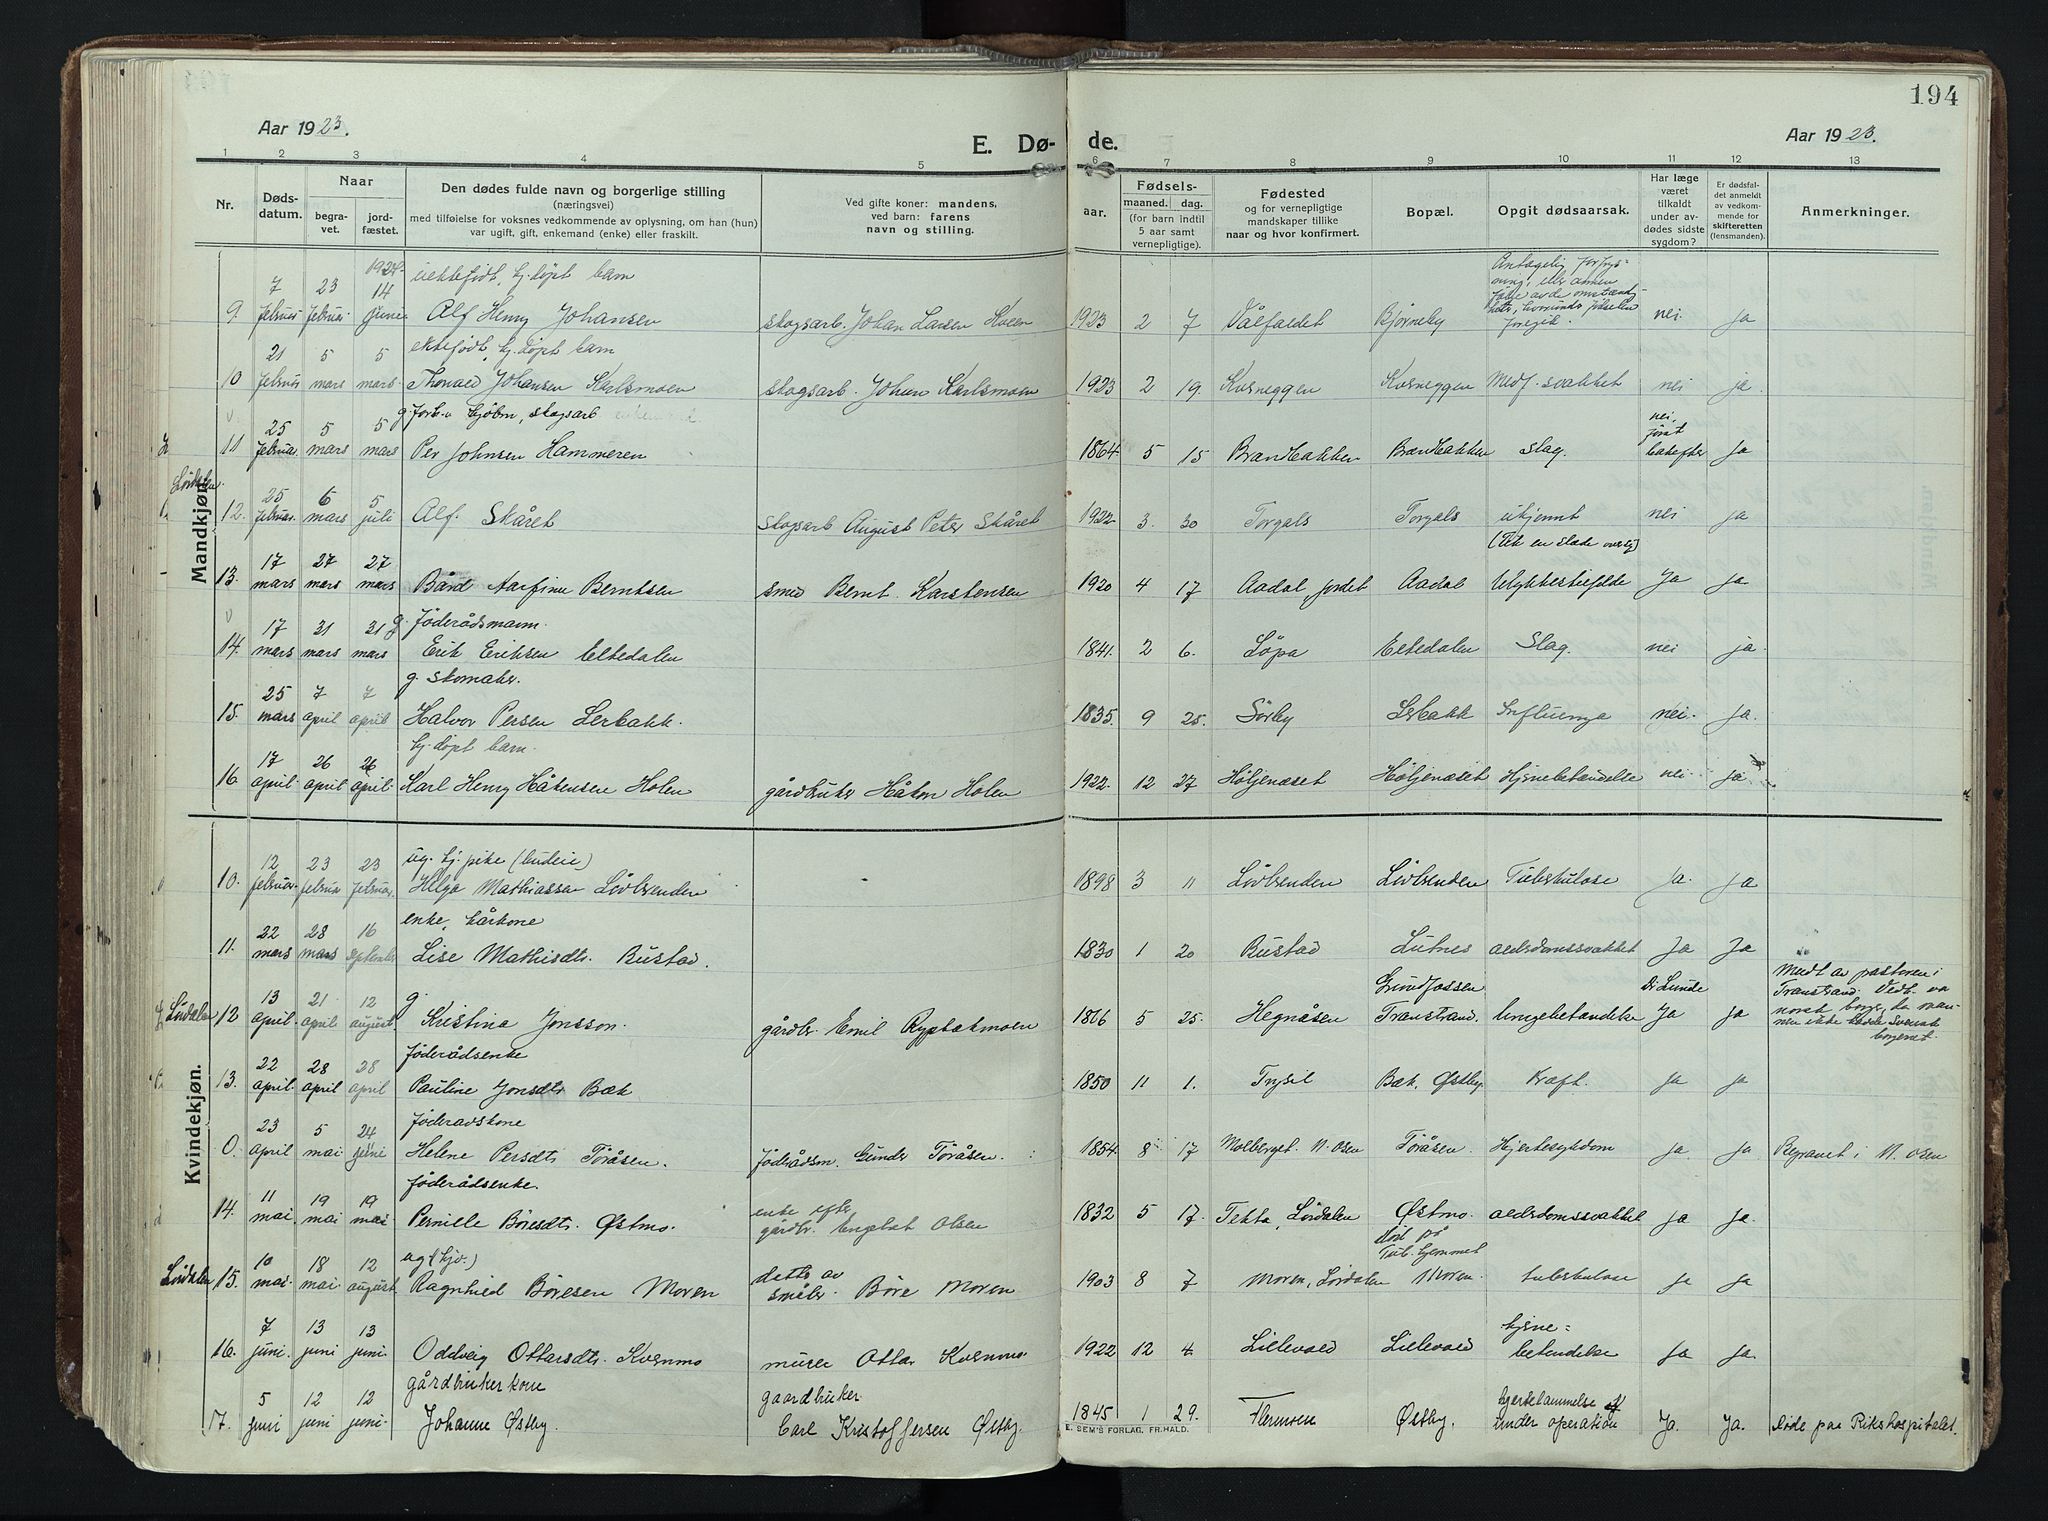 194
Aar 1923.
E. Dø- de.
Aar 1923.
1 2 3 4 5 6 7 8 9 10 11 12 13
Nr.
Døds-
datum.
Naar
begra-
vet.
jord-
fæstet.
Den dødes fulde navn og borgerlige stilling
(næringsvei)
med tilføielse for voksnes vedkommende av oplysning, om han (hun)
var ugift, gift, enkemand (enke) eller fraskilt.
Ved gifte koner: mandens,
ved barn: farens
navn og stilling.
Fødsels-
aar. maaned. dag.
(for barn indtil
5 aar samt
vernepligtige).
Fødested
og for vernepligtige
mandskaper tillike
naar og hvor konfirmert.
Bopæl.
Opgit dødsaarsak.
Har læge
været
tilkaldt
under av-
dødes sidste
sygdom?
Er dødsfal-
det anmeldt
av vedkom-
mende for
skifteretten
(lensmanden).
Anmerkninger.
Mandkjøn.
1924
7 23 14 ektefødt, hj.døpt barn
9. februar februar juni Alf Henry Johansen skogsarb. Johan Larsen Kveen 1923 2 7 Vålfaldet Bjørneby nei ja
21 5 5 ektefødt, hj.døpt barn
10 februar mars mars Thorvald Johansen Karlsmoen skogsarb. Johan Karlsmoen 1923 2 19. Kvæneggen Kvæneggen Medf. svakhet nei ja
25 5 5 g. skogsarb
11 februar mars mars Per Johnsen Hammeren 1864 5 15 Brændbakken Brændbakken Slag. nei, ja
Lørdalen
25 6 5
12. februar mars juli Alf. Skåret skogsarb August Peter Skåret 1922 3. 30 Torgals Torgals ukjent nei ja
17 27 27
13. mars mars mars Bård Aarfinn Berntsen smed Bernt Karstensen 1920 4 17 Aadal, jordet Aadal Ulykkestilfælde Ja Ja
17 31 31 g. føderådsmann.
14. mars mars mars Erik Eriksen Eltedalen 1841. 2 6. Løpa Eltedalen Slag. nei ja
25 7 7 g. skomaker.
15. mars april april Halvor Persen Lerbakk. 1835. 9 25. Sørby Lerbakk Influenza nei. Ja.
17 26 26 hj. døpt barn.
16. april april april Karl Henry Håkensen Holen gårdbruker Håkon Holen 1922. 12 27 Høljenæset Høljenæset Hjernebetændelse nei ja
Kvindekjøn.
12 23 23 ug. hj. pike (budeie)
10. februar februar februar Helga Mathiassen Lövbrenden 1898 3 11 Lövbrenden Lövbrenden Tuberkulose Ja. ja
22 28 16 enke, kårkone
11. mars mars september Lise Mathisdt. Bustad. 1830 1 20 Bustad Lutnes alderdomssvakhet Ja Ja
Lørdalen 13 21 12 g. Grundfossen Dr Lunde Medt av pastoren i
12 april april august Kristina Jonsson. gårdbr. Emil Ryptakmoen 1876 5 25. Hegnåsen Transtrand. lungebetændelse Ja Ja Transtrand.
22 28 28 føderådsenke
13. april april april Pauline Jonsdt. Bæk 1850 11 1. Trysil Bæk, Østby kræft. Ja Ja
23 5 24 føderådskone
0. april mai juni Helene Persdt. Tøråsen. føderådsm. Gunder Tøråsen. 1854. 8 17 Molberget. N. Osen Tøråsen. Hjertesykdom Ja Ja Begravet i N. Osen
11 19 19 føderådsenke.
14. mai mai mai Pernille Børesdt. Østmo. enke efter gårdbr. Engebret Olsen 1832 5 17. Tekta, Lørdalen Østmo. alderdomssvakhet Ja Ja.
Lørdalen 10 18 12 ug (hjv.) død på Tub. hjemmet
15. mai mai august Ragnhild Børesen Moren datter av småbr. Børe Moren 1903 8 7 Moren, Lørdalen Moren. tuberkulose Ja Ja
7 13 13 hjerne=
16. juni juni juni Oddveig Ottarsdt. Kvernmo murer Ottar Kvernmo 1922 12 4 Lillevold Lillevold betændelse Ja Ja
5 12 12 gårdbrukerkone gaardbruker hjertelammelse
17. juni juni juni Johanne Østby. Carl Kristoffersen Østby. 1845 1 29. Flermoen Østby. under operation Ja. Ja. Døde paa Rikshospitalet.
E. SEM'S FORLAG, FR.HALD.